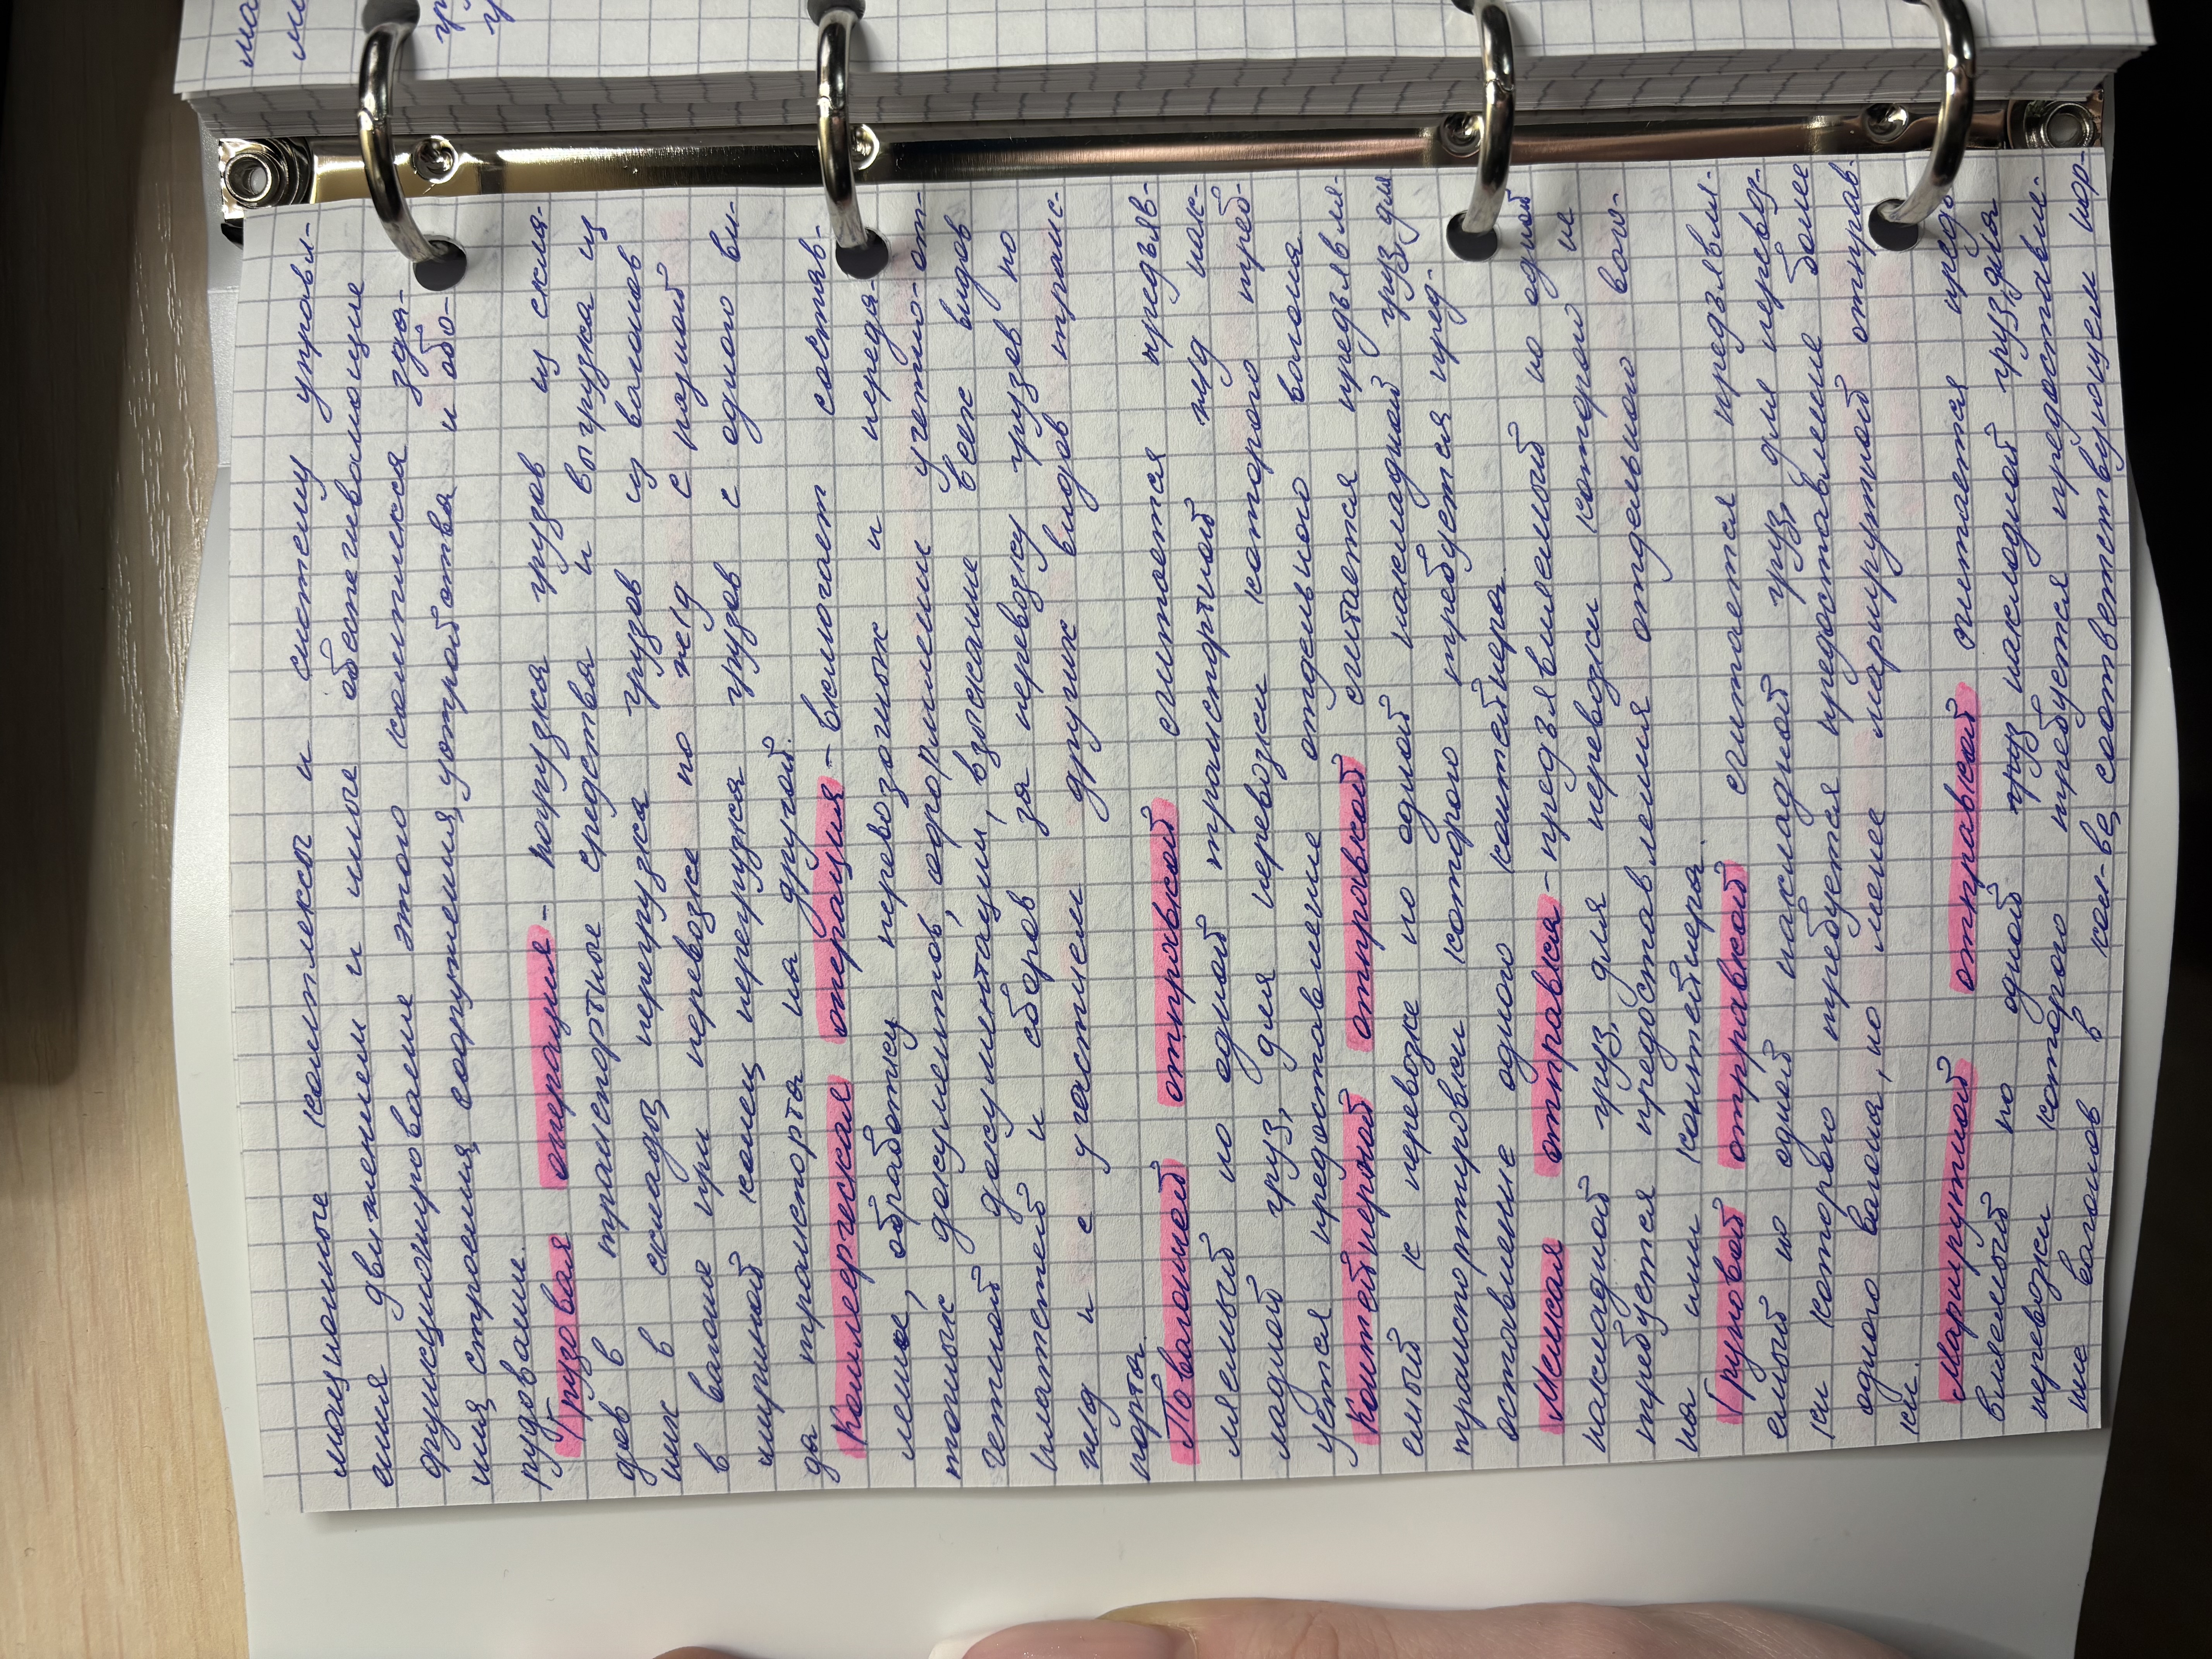 мационные комплексы и систему управл-
ения движением и иные обеспечивающие
функционирование этого комплекса зда-
ния, строения, сооружения, устройства и обо-
рудование.
Грузовая операция - погрузка грузов из скла-
дов в транспортные средства и выгрузка из
них в склады, перегрузка грузов из вагонов
в вагоне при перевозке по ж/д с разной
шириной колеи, перегрузка грузов с одного ви-
да транспорта на другой.
Коммерческая операция - включает составв-
ление, обработку перевозочных и переда-
точных документов, оформлении учетно-от-
четной документации, взыскание всех видов
платежей и сборов за перевозку грузов по
ж/д и с участием других видов транс-
порта.
Повагонной отправкой считается предъяв-
ляемый по одной транспортной ж/д нак-
ладной груз, для перевозки которого треб-
уется предоставление отдельного вагона.
Контейнерной отправкой считается предъявля-
емый к перевозке по одной накладной груз, для
транспортировки которого требуется пред-
оставление одного контейнера.
Мелкая отправка - предъявляемый по одной
накладной груз, для перевозки которого не
требуется предоставления отдельного ваго-
на или контейнера.
Групповой отправкой считается предъявля-
емый по одной накладной груз, для перевоз-
ки которого требуется предоставление более
одного вагона, но менее маршрутной отправ-
ки.
Маршрутной отправкой считается предъ-
вляемый по одной накладной груз, для
перевозки которого требуется предоставле-
ние вагонов в кол-ве, соответствующем нор-